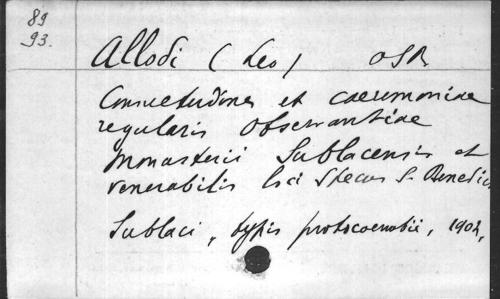 89
93.
Allodi (Leo) OSB
Consuetudines et caeremoniae
regularis observantiae
monasterii Sublacensis et
venerabilis loci Specus S. Benedic
Sublaci, typis protocoenobii, 1902,